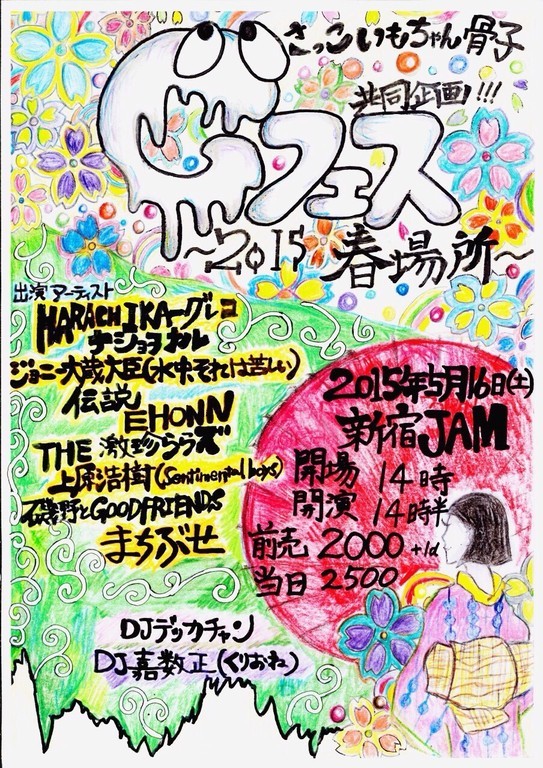 さっこいもちゃん骨子
共同企画!!!
Gフェス
~2015 春場所~
出演アーティスト
HARACHIKA-グレコ
ナショヲカレ
ジョニー大蔵大臣(水中、それは苦しい)
伝説
EHONN
THE 激珍ららズ
上原浩樹(Sentimental boys)
磯野とGOODFRIENDS
まちぶせ
2015年5月16日(土)
新宿JAM
開場 14時
開演 14時半
前売 2000 +1d
当日 2500
DJデッカチャン
DJ嘉数正(くりおね)